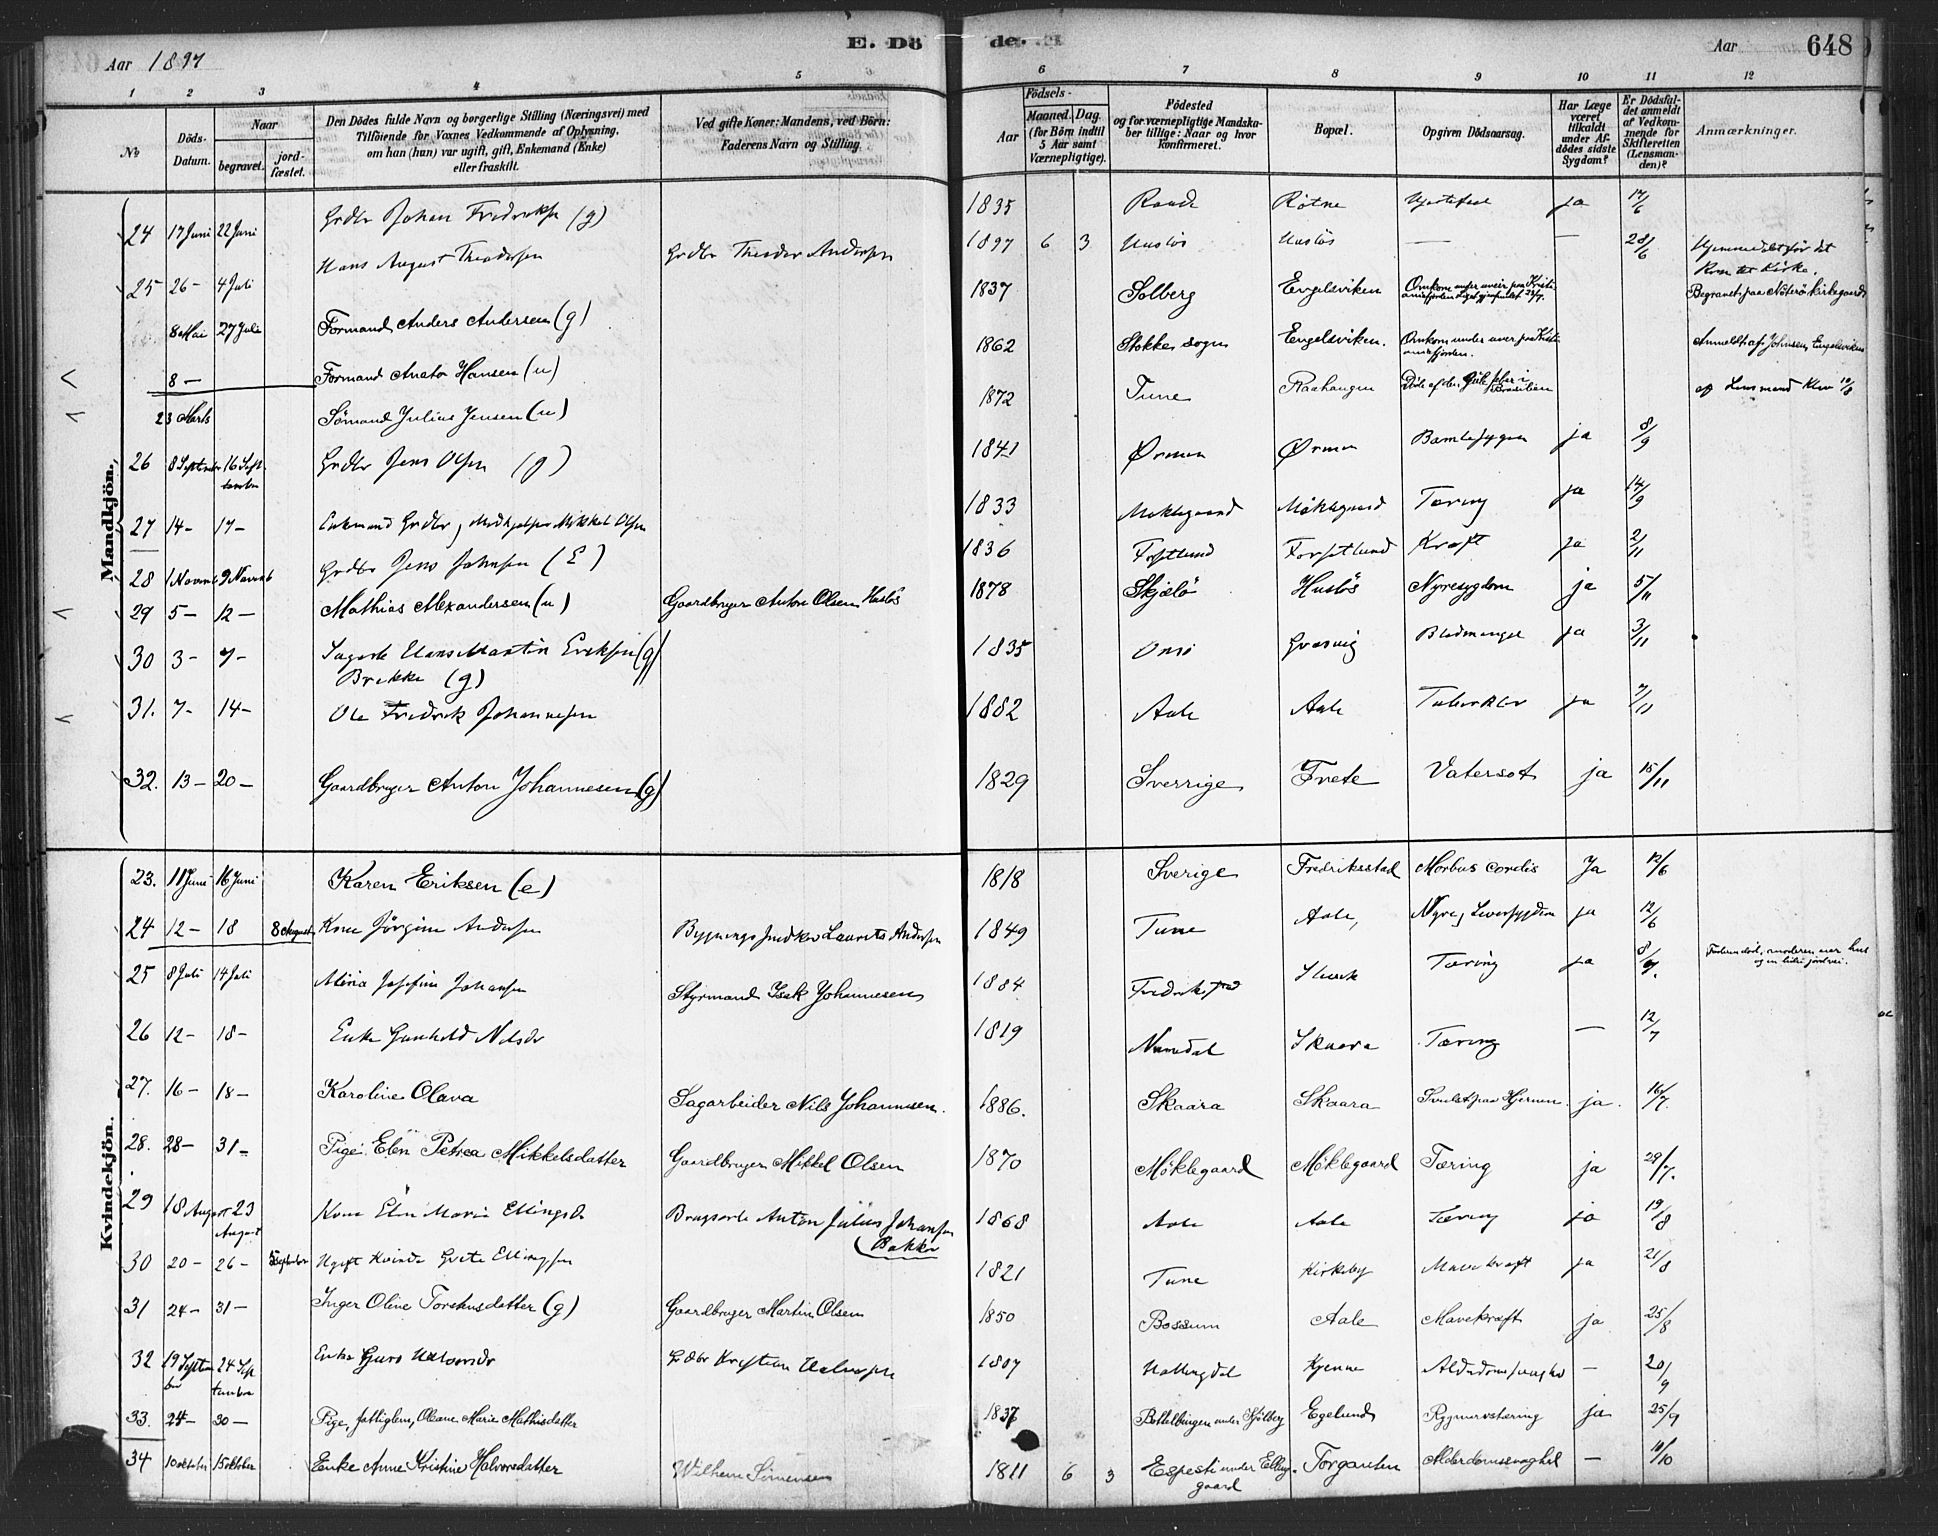 Aar 1897 E. Dö de. Aar 648
1 2 3 4 5 6 7 8 9 10 11 12
No
Döds-Datum.
Naar
begravet.
jord-fæstet.
Den Dödes fulde Navn og borgerlige Stilling (Næringsvei) med
Tilföiende for Voxnes Vedkommende af Oplysning,
om han (hun) var ugift, gift, Enkemand (Enke)
eller fraskilt.
Ved gifte Koner: Mandens, ved Börn:
Faderens Navn og Stilling.
Födsels-
Aar
Maaned. Dag.
(for Börn indtil
5 Aar samt
Værnepligtige).
Födested
og for værnepligtige Mandska-
ber tillige: Naar og hvor
konfirmeret.
Bopæl.
Opgiven Dödsaarsag.
Har Læge
været
tilkaldt
under Af-
dödes sidste
Sygdom?
Er Dödsfal-
det anmeldt
af Vedkom-
mende for
Skifteretten
(Lensman-
den)?
Anmærkninger.
Mandkjön.
24 17 Juni 22 Juni Grdbr Johan Fredriksen (g) 1835 Raade Rötne ja 17/6
25 26 - 4 Juli Hans August Theodorsen Grdbr Theodor Andersen 1897 6 3 Huslös Huslös — — 28/6 Hjemmedöbt för det
kom til Kirke.
8 Mai 27 Juli Formand Anders Andersen (g) 1837 Solberg Engelsviken Omkom under uveir paa Kristi-
aniafjorden Begravet paa Nöterö Kirkegaard
8 — Formand Anato Hansen (u) 1862 Stokke sogn Engelsviken. Omkom under uveir paa Kristi-
aniafjorden. Anmeldt af Johnsen, Engelsviken
23 Marts Sömand Julius Jensen (u) 1872 Tune Raahaugen Döde af den gule feber i
Brasilien af Lensmand Klev 10/8
26 8 September 16 Sep-
tember Grdbr Jens Olsen (g) 1841 Örmen Örmen ja 8/9
27 14 - 17 - Enkemand Grdbr, Medhjelper Mikkel Olsen 1833 Moklegaard Möklegaard Tæring ja 14/9
28 1 Novemb 9 Novemb Grdbr Jens Johnsen (E) 1836 Forsetlund Kræft ja 2/11
29 5 - 12 - Mathias Alexandersen (u) Gaardbruger Anton Olsen Huslös 1878 Skjælö Huslös Nyresygdom ja 5/11
30 3 - 7 - Sagarb Hans Martin Eriksen (g)
Brekke (g) 1835 Onsö Græsvig Blodmangel ja 3/11
31. 7 - 14 - Ole Fredrik Johannesen 1882 Aale Aale Tuberkler ja 7/11
32. 13 - 20 - Gaardbruger Anton Johannesen (g) 1829 Sverrige Trete Vatersot ja 15/11
Kvindekjön.
23. 11 Juni 16 Juni Karen Eriksen (e) 1818 Sverige Fredriksstad Morbus cordis Ja 12/6
24 12 - 18 8 August Kone Jörgine Andersen Bygnings Laurits Andersen 1849 Tune Aale, Nyre, Leversygdom ja 12/6
25 8 Juli 14 Juli Josefine Johansen Styrmand Isak Johannesen 1884 Fredriksstad Tæring ja 8/7.
26 12 - 18 - Enke Gunhild Nilsdr 1819 Skaara Tæring — 12/7
27. 16 - 18 - Karoline Olava Sagarbeider Nils Johannesen. 1886. Skaara Skaara Svulst paa Hjernen. ja. 16/7.
28. 28 - 31 - Pige Elen Petrea Mikkelsdatter Gaardbruger Mikkel Olsen 1870 Möklegaard Möklegaard Tæring ja 29/7.
29 18 August 23
August Kone Elen Marie Ellingsdr Brugsarb Anton Julius Johansen
Bakke 1868 Aale Aale Tæring ja 19/8
30 20 - 26 - Ugift Kvinde Grete Ellingsen 1821 Tune Kirkeby Mavekræft ja 21/8
31 24 - 31 - Inger Oline Torstensdatter (g) Gaardbruger Martin Olsen 1850 Bossum Aale Mavekræft ja 25/8
32 19 Septem-
ber 24 Sep-
tember Enke Guro Halvorsdr Grdbr Kristian Halvorsen 1807 Hallingdal Kjenne — 20/9
33. 24 - 30 - Pige, fattiglem, Oleane Marie Mathisdatter 1837 Egelund Rygmarvstæring ja 25/9
34 10 oktober 15 oktober Enke Anne Kristine Halvorsdatter Wilhem Simensen 1811 6 3 Espesti under Elling-
gaard Torgauten Alderdomssvaghed — 10/10